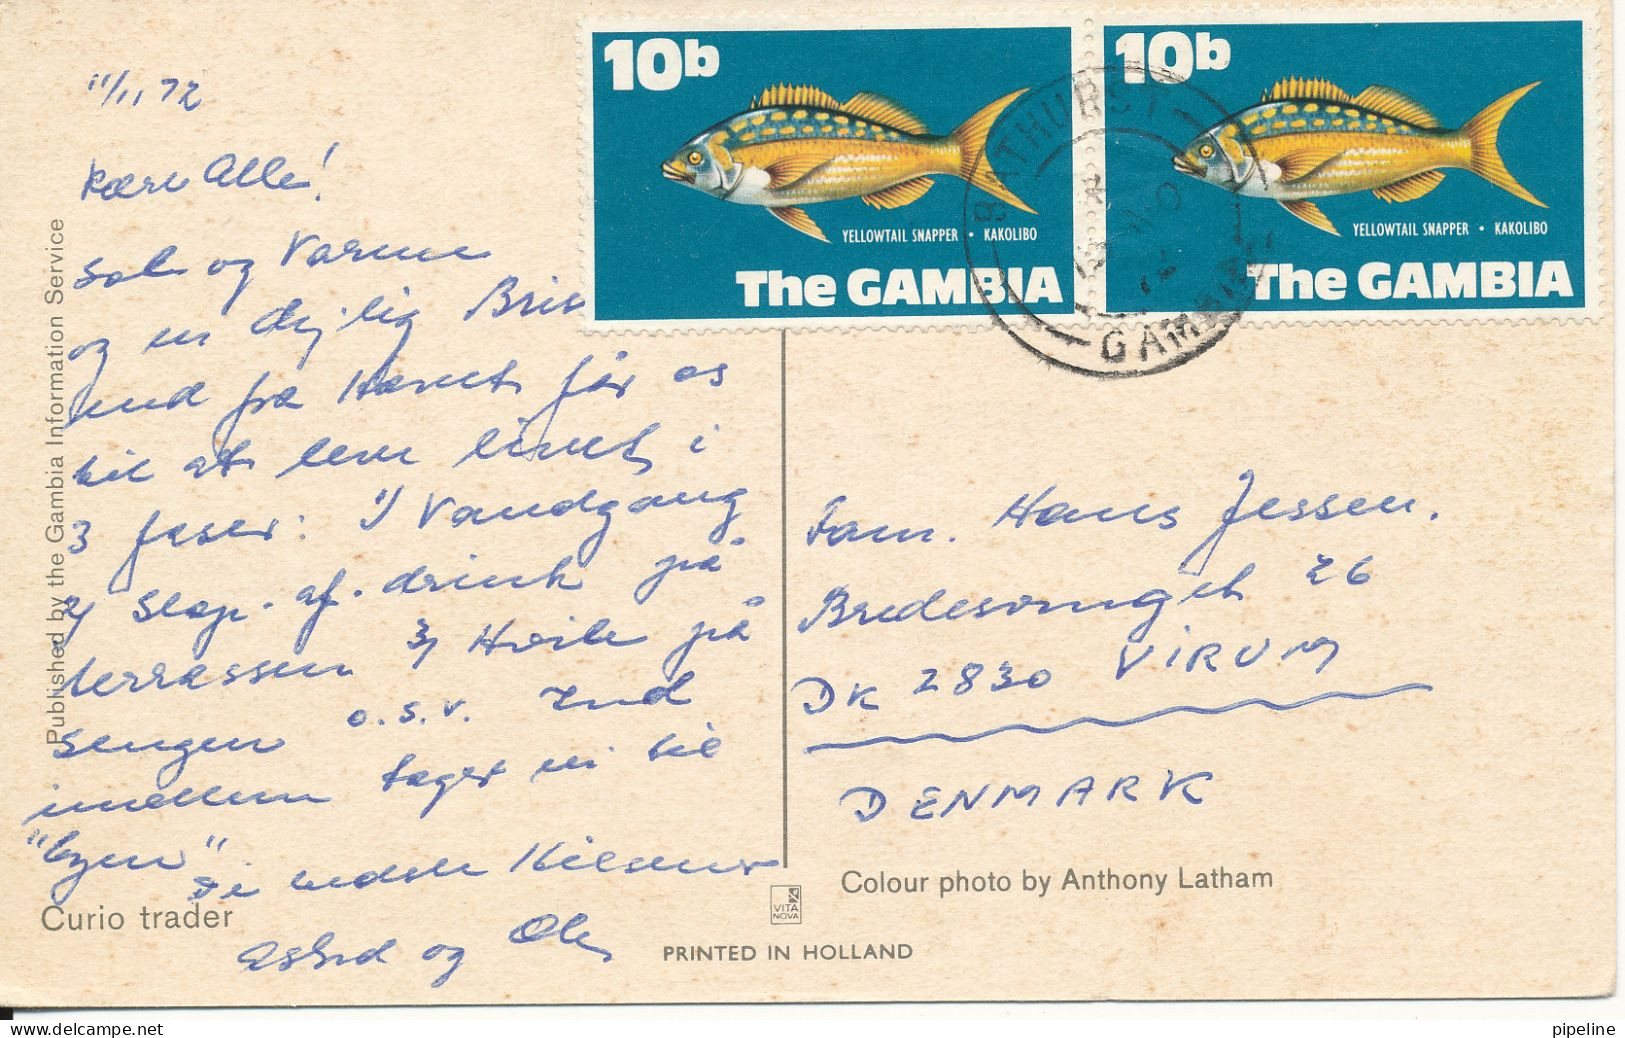 11/11 72
10b
10b
Kære Alle!
YELLOWTAIL SNAPPER • KAKOLIBO
YELLOWTAIL SNAPPER • KAKOLIBO
The GAMBIA
The GAMBIA
BATHURST
GAMBIA
Sol og Varme
og en dejlig Bris
ind fra Havet får os
til at leve livet i
3 faser: 1/ Vandgang
2/ Slap. af. drink på
terrassen 3/ Hvile på
sengen o.s.v. Ind
imellem tager vi til
"byen"
Hilsener
og Ole
Fam. Hans Jessen.
Bredesvinget 26
DK 2830 VIRUM
DENMARK
Published by the Gambia Information Service
Curio trader
VITA
NOVA
Colour photo by Anthony Latham
PRINTED IN HOLLAND
pipeline